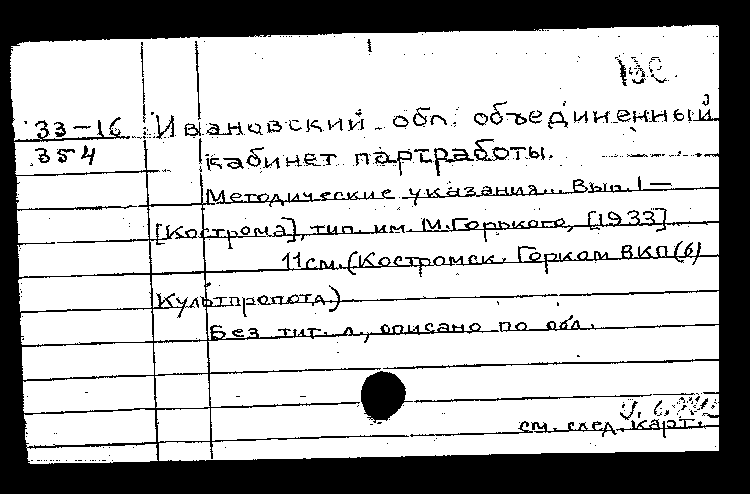 33-16 Ивановский обл. объединенный
354 кабинет партработы.
Методические указания... Вып. 1-
[Кострома], тип. им. М.Горького, [1933]
11см. (Костромск. Горком ВКП(б)
Культпропотд.)
Без тит. л., описано по обл.
см. след. карт.